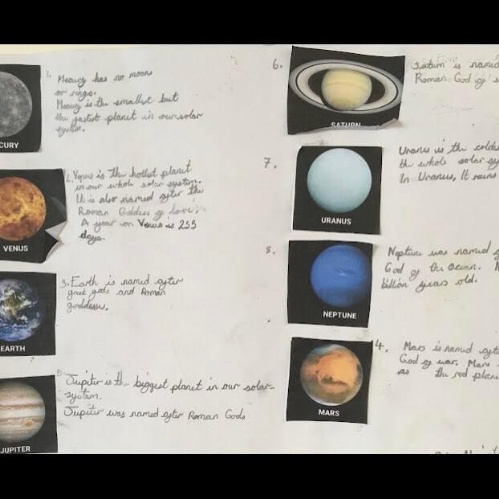 1.
Mercury has no moons
or rings.
Mercury is the smallest but
the fastest planet in our solar
system.
CURY
2. Venus is the hottest planet
in our whole solar system.
It is also named after the
Roman Goddess of love.
A year on Venus is 255
days.
VENUS
3. Earth is named after
greek gods and Roman
goddess.
EARTH
5. Jupiter is the biggest planet in our solar
system.
Jupiter was named after Roman Gods
JUPITER
6. Saturn is named
Roman God of
SATURN
7. Uranus is the coldes
the whole solar sy
In Uranus, It rains
URANUS
8. Neptune was named
God of the Ocean.
billion years old.
NEPTUNE
4. Mars is named afte
God of war. Mars
as the red plane
MARS